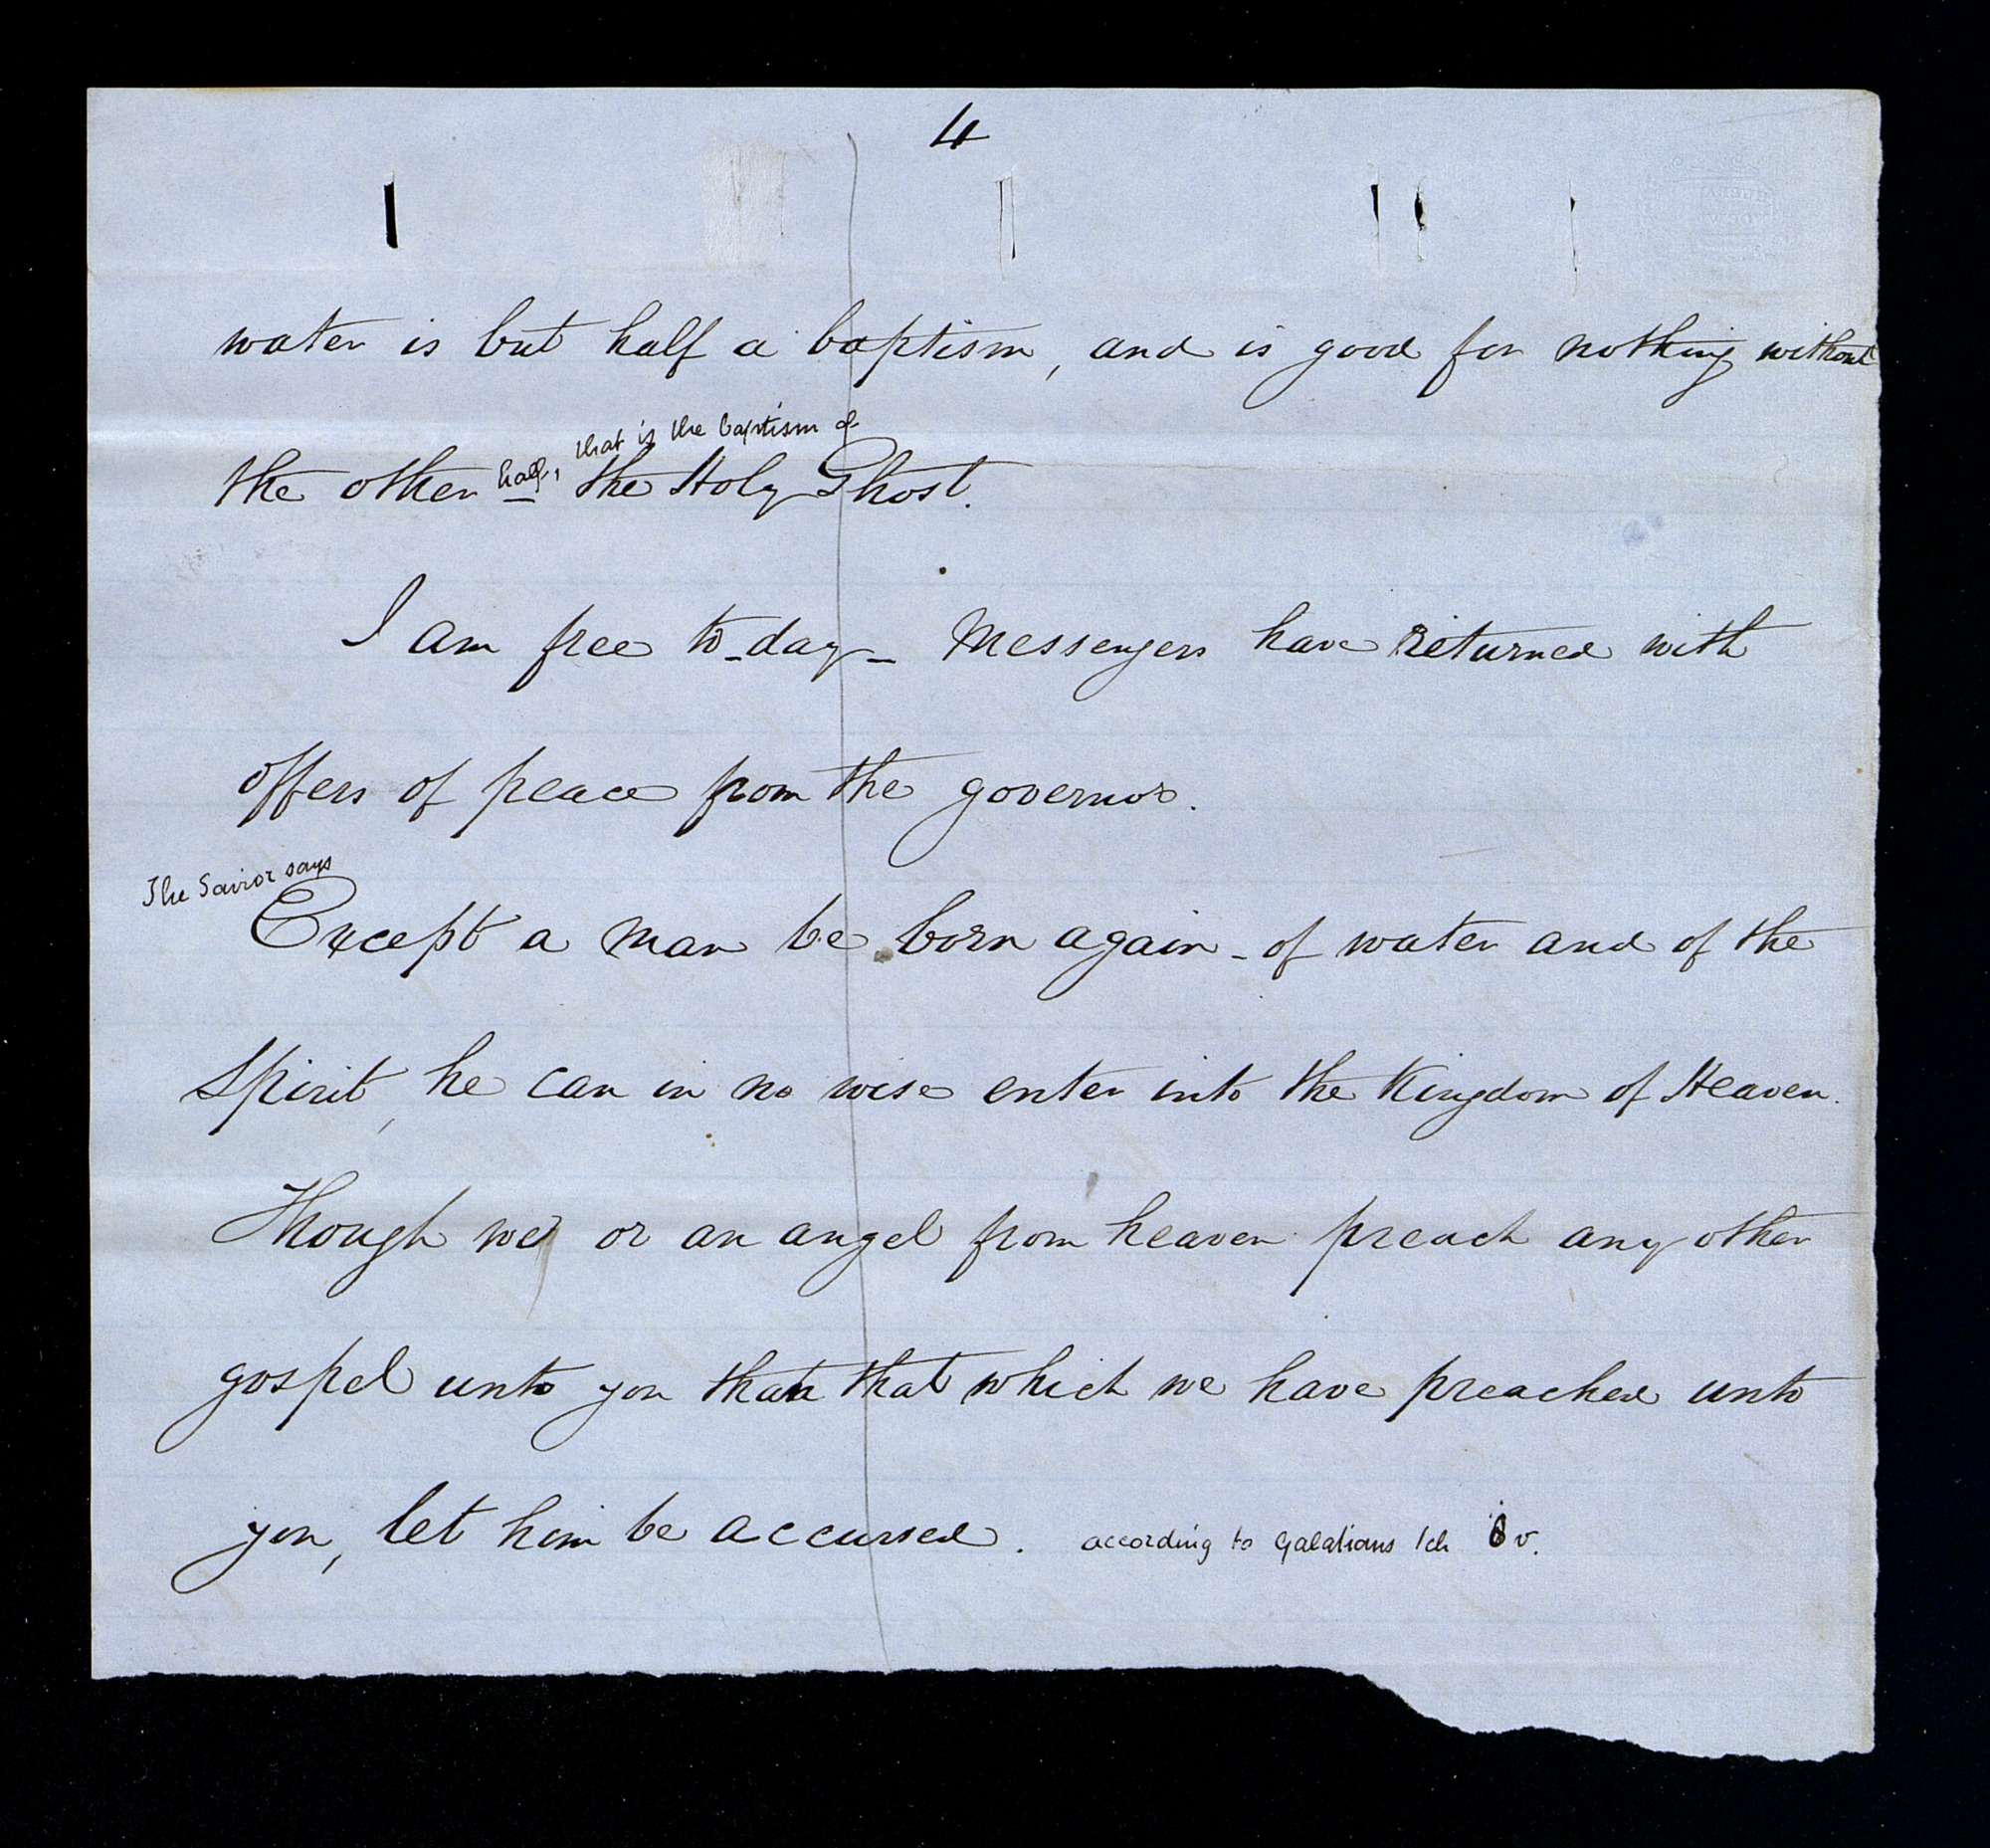 4
water is but half a baptism, and is good for nothing without
that is the baptism of
the other half, the Holy Ghost.
I am free to-day - Messengers have returned with
offers of peace from the governor.
The Savior says
Except a man be born again - of water and of the
Spirit, he can in no wise enter into the Kingdom of Heaven.
Though we or an angel from heaven preach any other
gospel unto you than that which we have preached unto
you, let him be accursed. according to Galatians 1ch 8v.